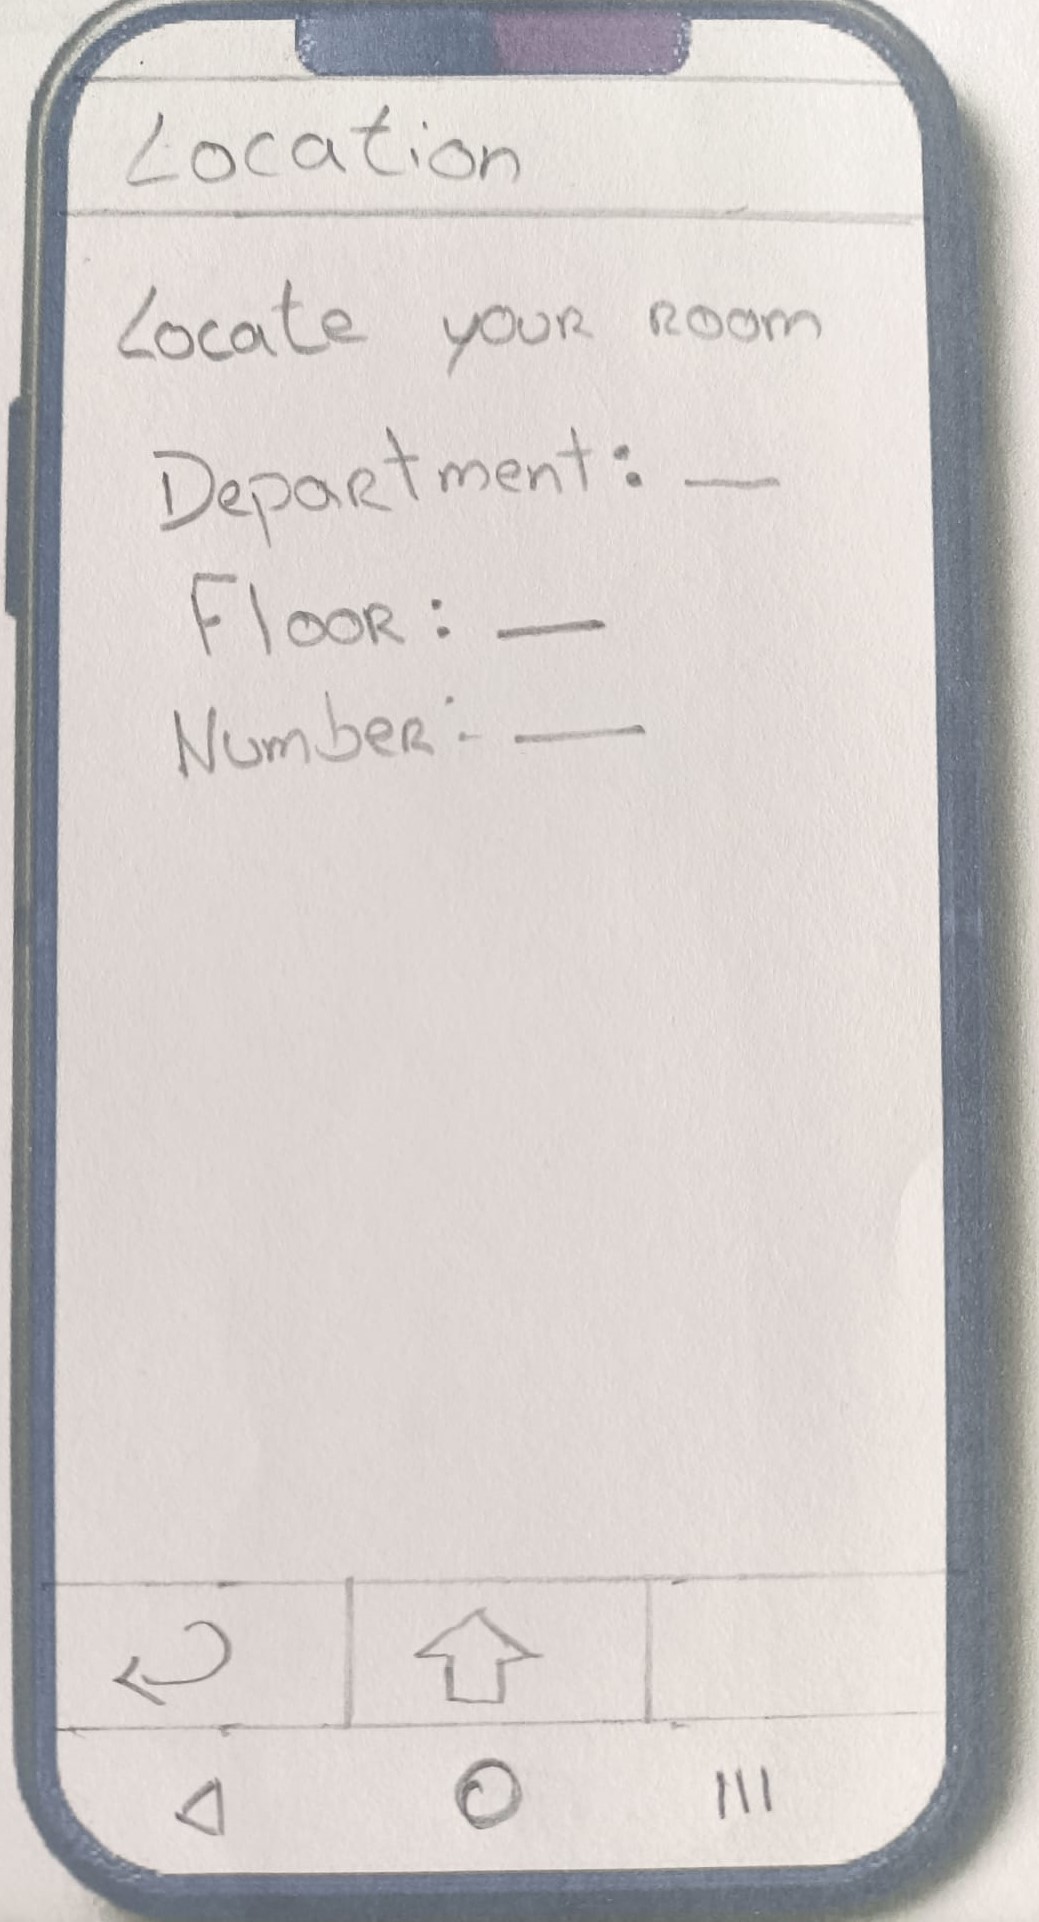 Location
Locate your room
Department: —
Floor: —
Number: —